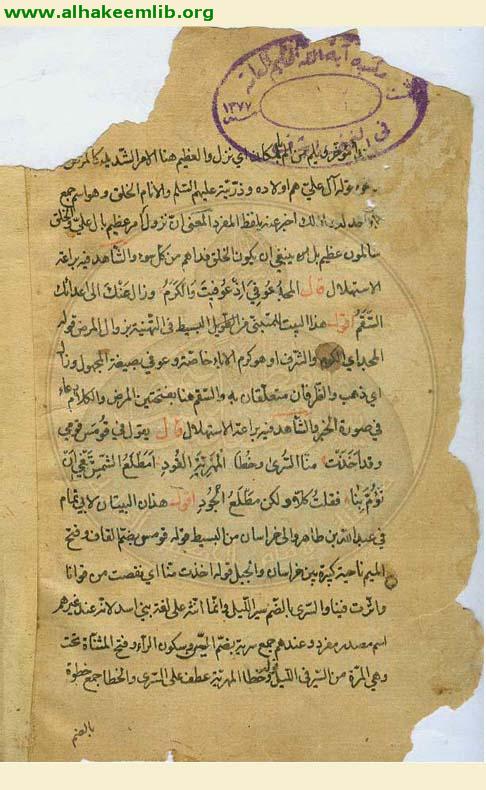 www.alhakeemlib.org
مكتبة آية الله الحكيم العامة
١٣٧٧
في النجف
اي نزل والعظيم هنا الامر الشديد كالمرض
قوله آل علي هم اولاده وذريته عليهم السلم والانام الخلق وهو اسم جمع
لا واحد له ولذلك اخبر عنه بلفظ المفرد المعنى ان نزل امر عظيم بآل علي فالخلق
سالمون عظيم بل ينبغي ان يكون الخلق فداهم من كل سوء والشاهد فيه براعة
الاستهلال قال المجد عوفي اذ عوفيت والكرم وزال عنك الى اعدائك
السقم اقول هذا البيت للمتنبي من البسيط في التهنية بزوال المرض قوله
المجد اي الكرم والشرف او هو كرم الاباء خاصة وعوفي بصيغة المجهول وزال
اي ذهب والظرفان متعلقان به والسقم هنا بفتحتين المرض والكلام دعاء
في صورة الخبر والشاهد فيه براعة الاستهلال قال يقول في قومس قومي
وقد اخذت منا السرى وخطا المهرية القود امطلع الشمس تبغي ان
تؤم بنا فقلت كلا ولكن مطلع الجود اقول هذان البيتان لابي تمام
في عبد الله بن طاهر والي خراسان من البسيط قوله قومس بضم القاف وفتح
الميم ناحية كبيرة بين خراسان والجبل قوله اخذت منا اي نقصت من قوانا
واثرت فينا والسرى بالضم سير الليل وانما انثه على لغة بني اسد لانه عند غيرهم
اسم مصدر مفرد وعندهم جمع سرية بضم السين وسكون الراء وفتح المثناة تحت
وهي المرة من السير في الليل قوله وخطا المهرية عطف على السرى والخطا جمع خطوة
بالضم